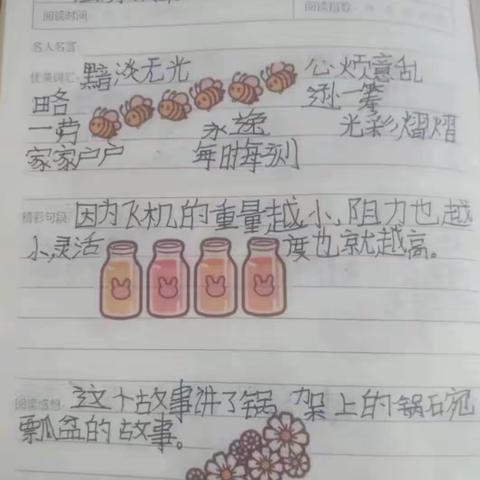 阅读时间:
阅读指数:
名人名言:
优美词汇: 黯淡无光 心烦意乱
略 逊一筹
一劳 永逸 光彩熠熠
家家户户 每时每刻
精彩句段: 因为飞机的重量越小,阻力也越
小,灵活 度也就越高。
阅读感想: 这个故事讲了锅 架上的锅碗
瓢盆的故事。